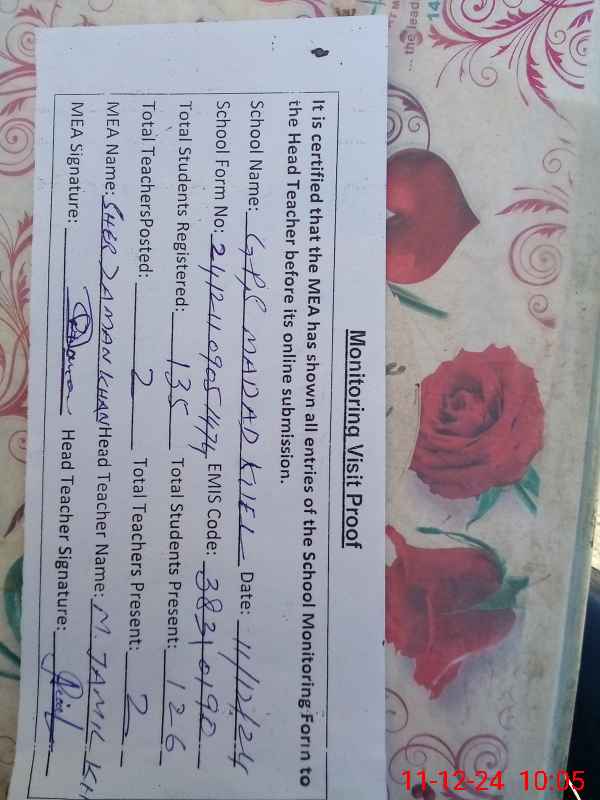 Monitoring Visit Proof
It is certified that the MEA has shown all entries of the School Monitoring Form to
the Head Teacher before its online submission.
School Name: GPS MADAD KHEL Date: 11/12/24
School Form No: EMIS Code:
Total Students Registered: 135 Total Students Present: 126
Total TeachersPosted: 2 Total Teachers Present: 2
MEA Name: SHER ZAMAN KHAN Head Teacher Name: M. JAMIL KH
MEA Signature: Head Teacher Signature:
11-12-24 10:05